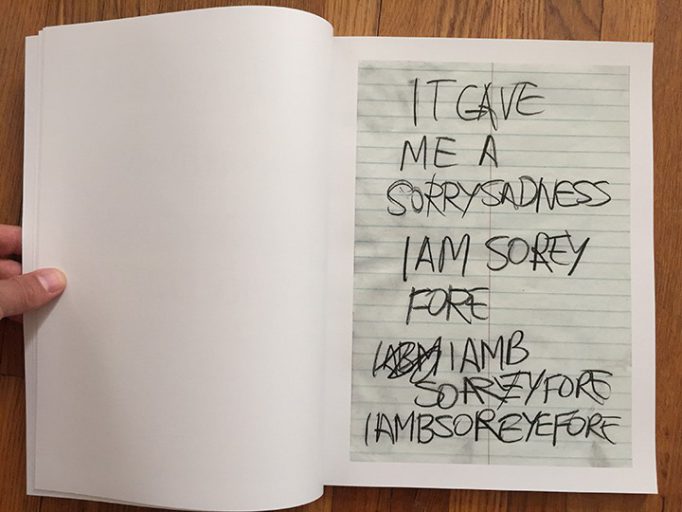 IT GAVE
ME A
SORRYSADNESS
I AM SOREY
FORE
IAMB
SOREYFORE
IAMBSOREYEFORE